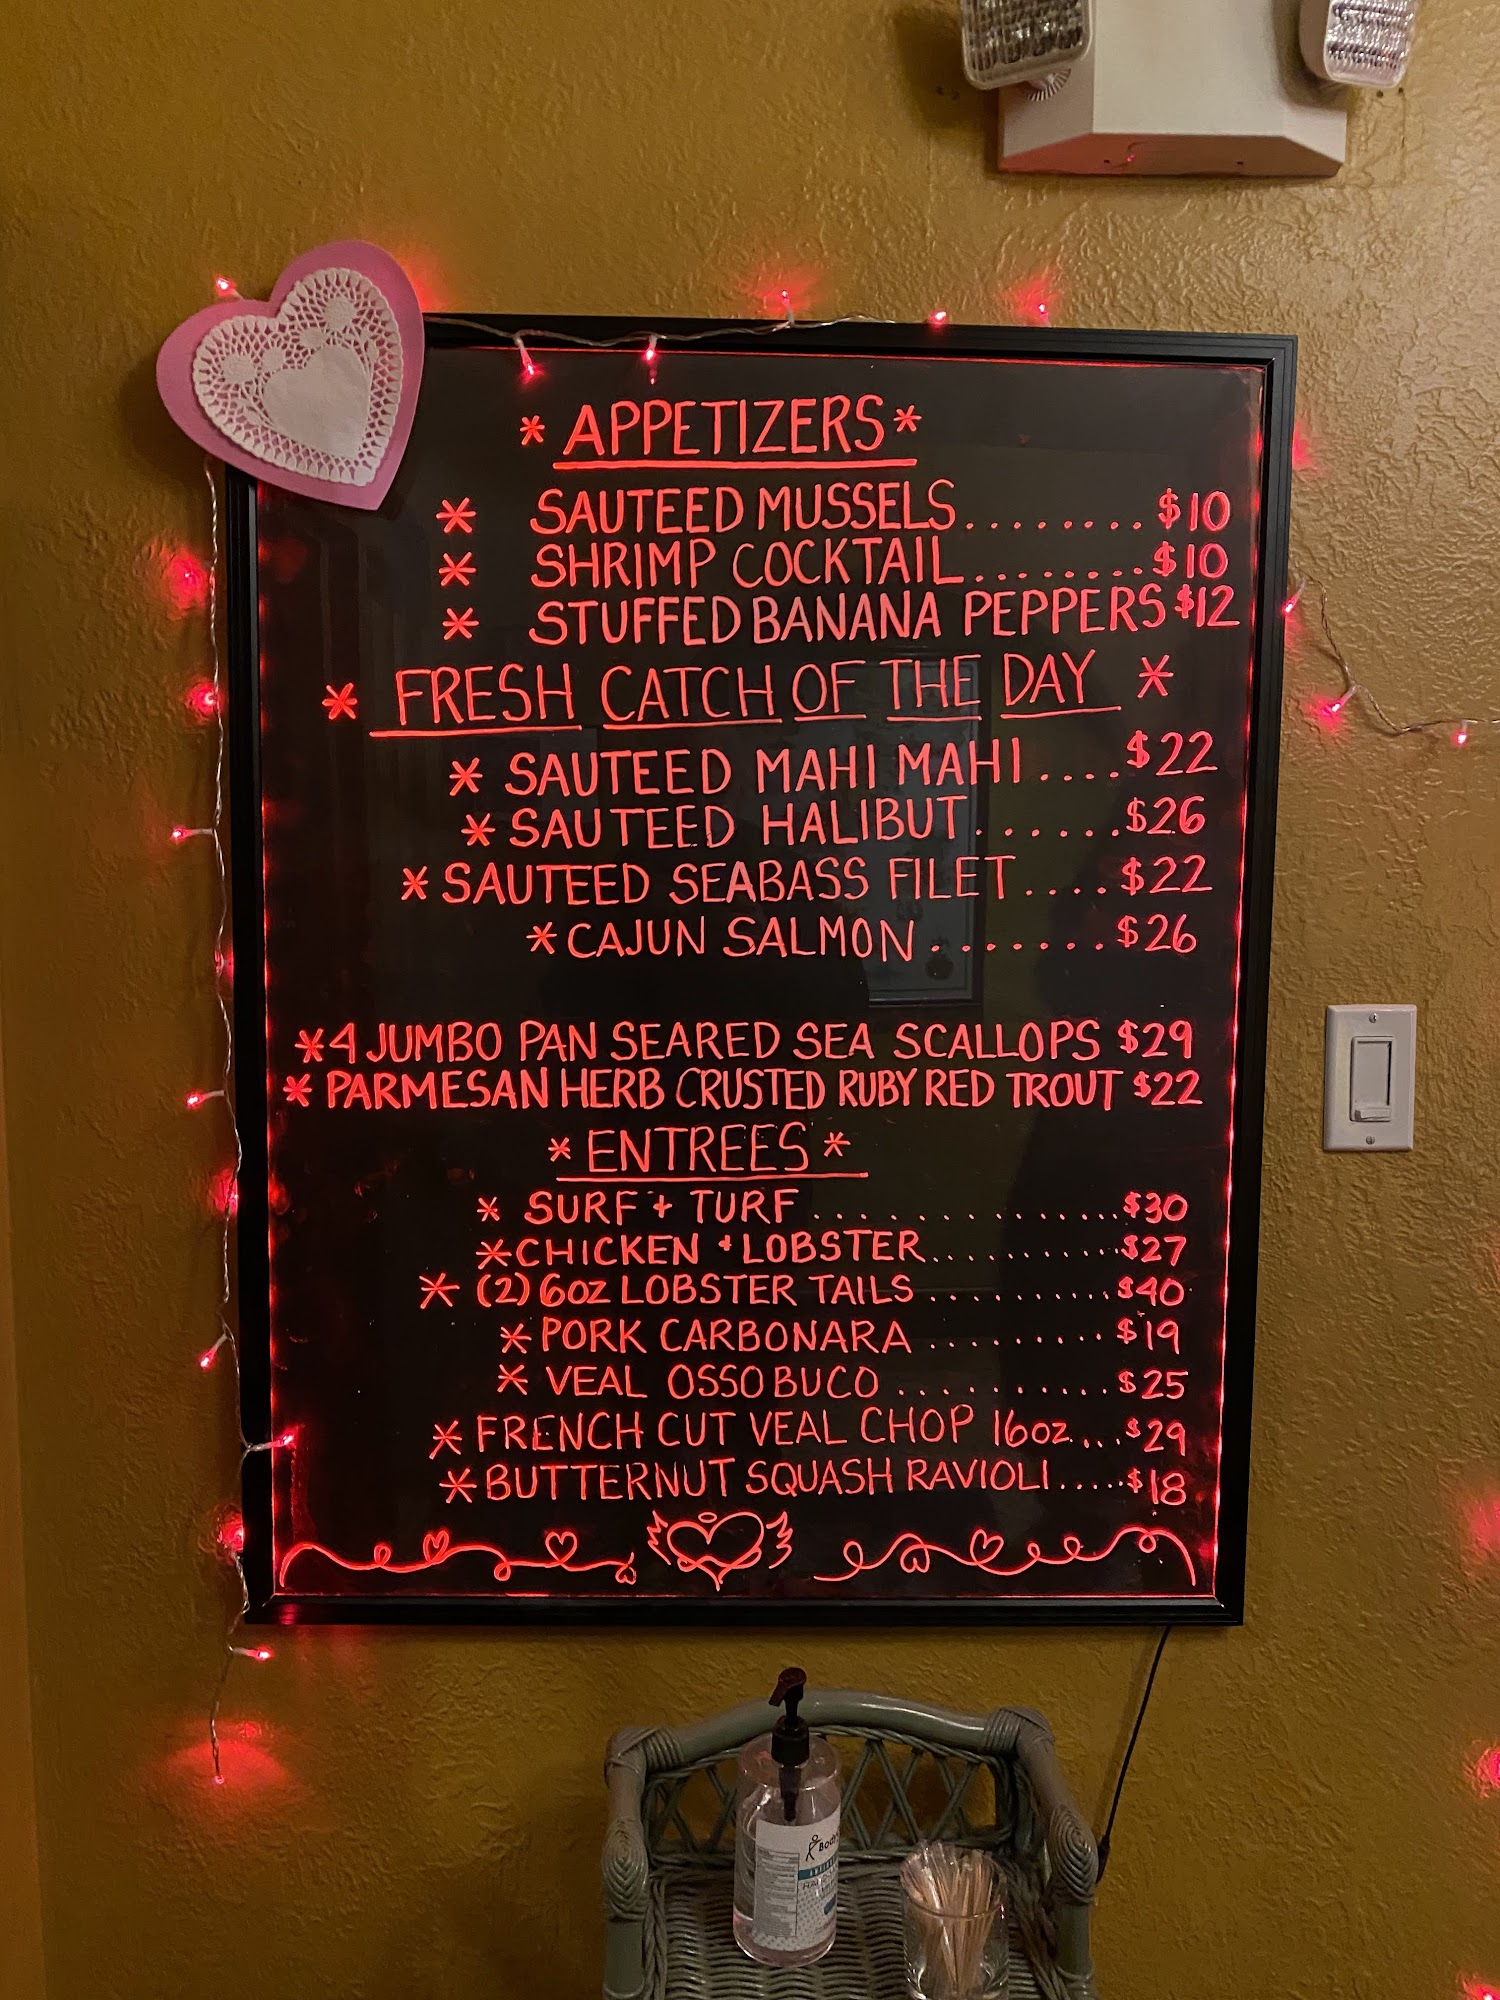 * APPETIZERS *
* SAUTEED MUSSELS........$10
* SHRIMP COCKTAIL........$10
* STUFFED BANANA PEPPERS $12
* FRESH CATCH OF THE DAY *
* SAUTEED MAHI MAHI....$22
* SAUTEED HALIBUT.......$26
* SAUTEED SEABASS FILET....$22
* CAJUN SALMON.......$26
* 4 JUMBO PAN SEARED SEA SCALLOPS $29
* PARMESAN HERB CRUSTED RUBY RED TROUT $22
* ENTREES *
* SURF + TURF................$30
* CHICKEN + LOBSTER...........$27
* (2) 6oz LOBSTER TAILS...........$40
* PORK CARBONARA.........$19
* VEAL OSSO BUCO..........$25
* FRENCH CUT VEAL CHOP 16oz...$29
* BUTTERNUT SQUASH RAVIOLI.....$18